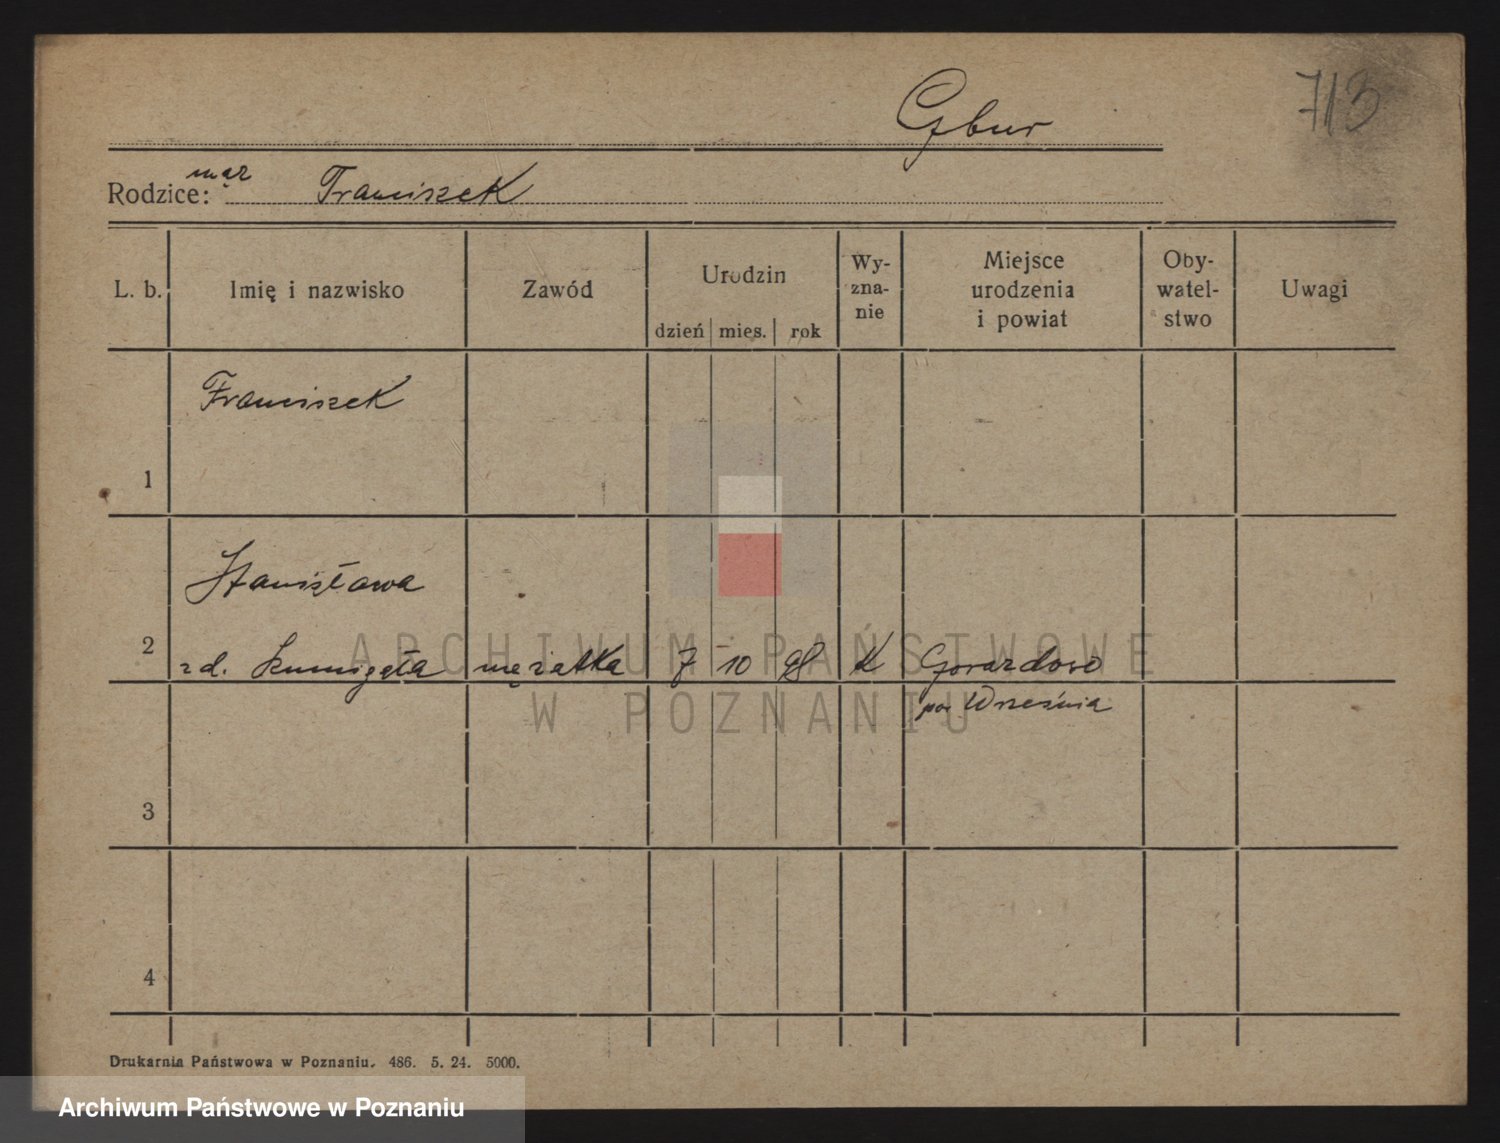 713
Gbur
Rodzice: mąż Franciszek
L. b. Imię i nazwisko Zawód Urodzin Wy-zna-nie Miejsce urodzenia i powiat Oby-watel-stwo Uwagi
dzień mies. rok
Franciszek
1
Stanisława
2 zd. mężatka 7 10 98 K
pow Września
3
4
Drukarnia Państwowa w Poznaniu. 486. 5. 24. 5000.
ARCHIWUM PAŃSTWOWE
W POZNANIU
Archiwum Państwowe w Poznaniu